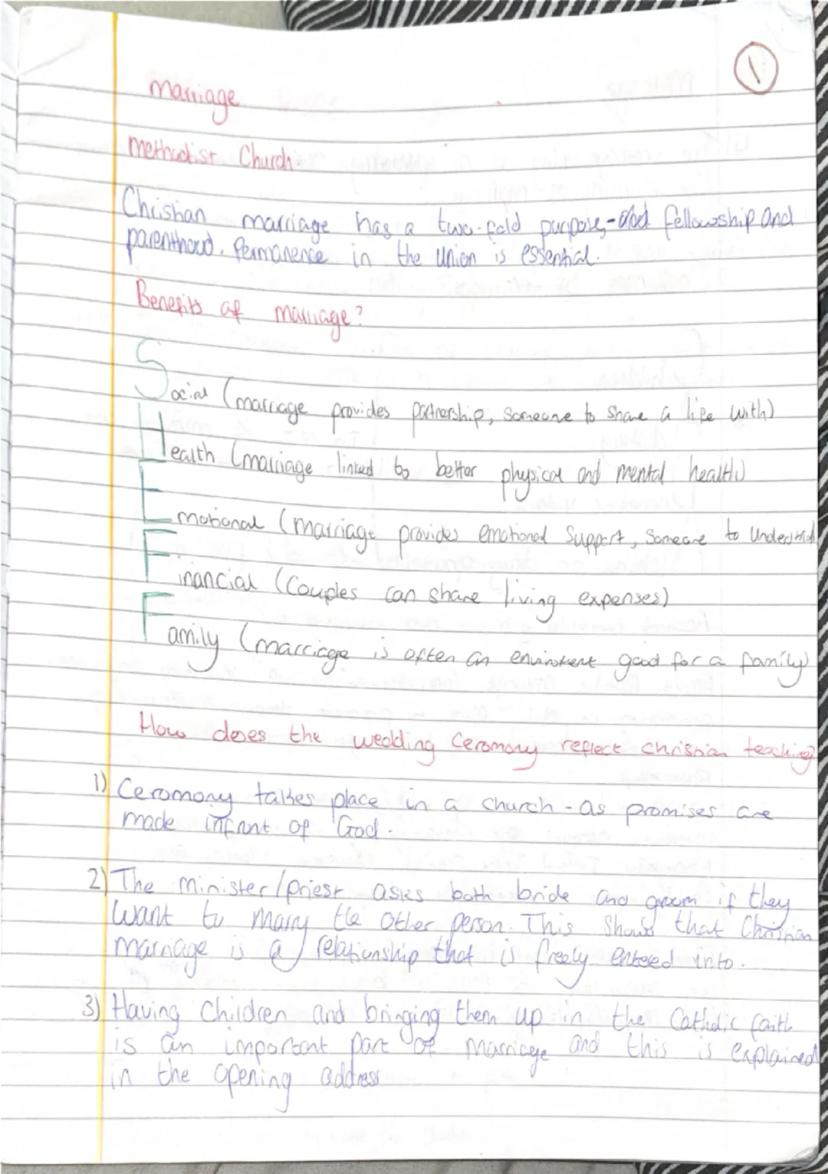 1
Marriage
Methodist Church
Christian marriage has a two-fold purpose, - fellowship and
parenthood. Permanence in the union is essential.
Benefits of marriage?
Social (marriage provides partnership, someone to share a life with)
Health (marriage linked to better physical and mental health)
Emotional (marriage provides emotional support, someone to understand
Financial (Couples can share living expenses)
Family (marriage is often an enviroment good for a family)
How does the wedding ceromony reflect christian teaching?
1) Ceromony takes place in a church - as promises are
made infront of God.
2) The minister/priest asks both bride and groom if they
want to marry the other person. This shows that Christian
marriage is a relationship that is freely entered into.
3) Having children and bringing them up in the Catholic faith
is an important part of marriage and this is explained
in the opening address